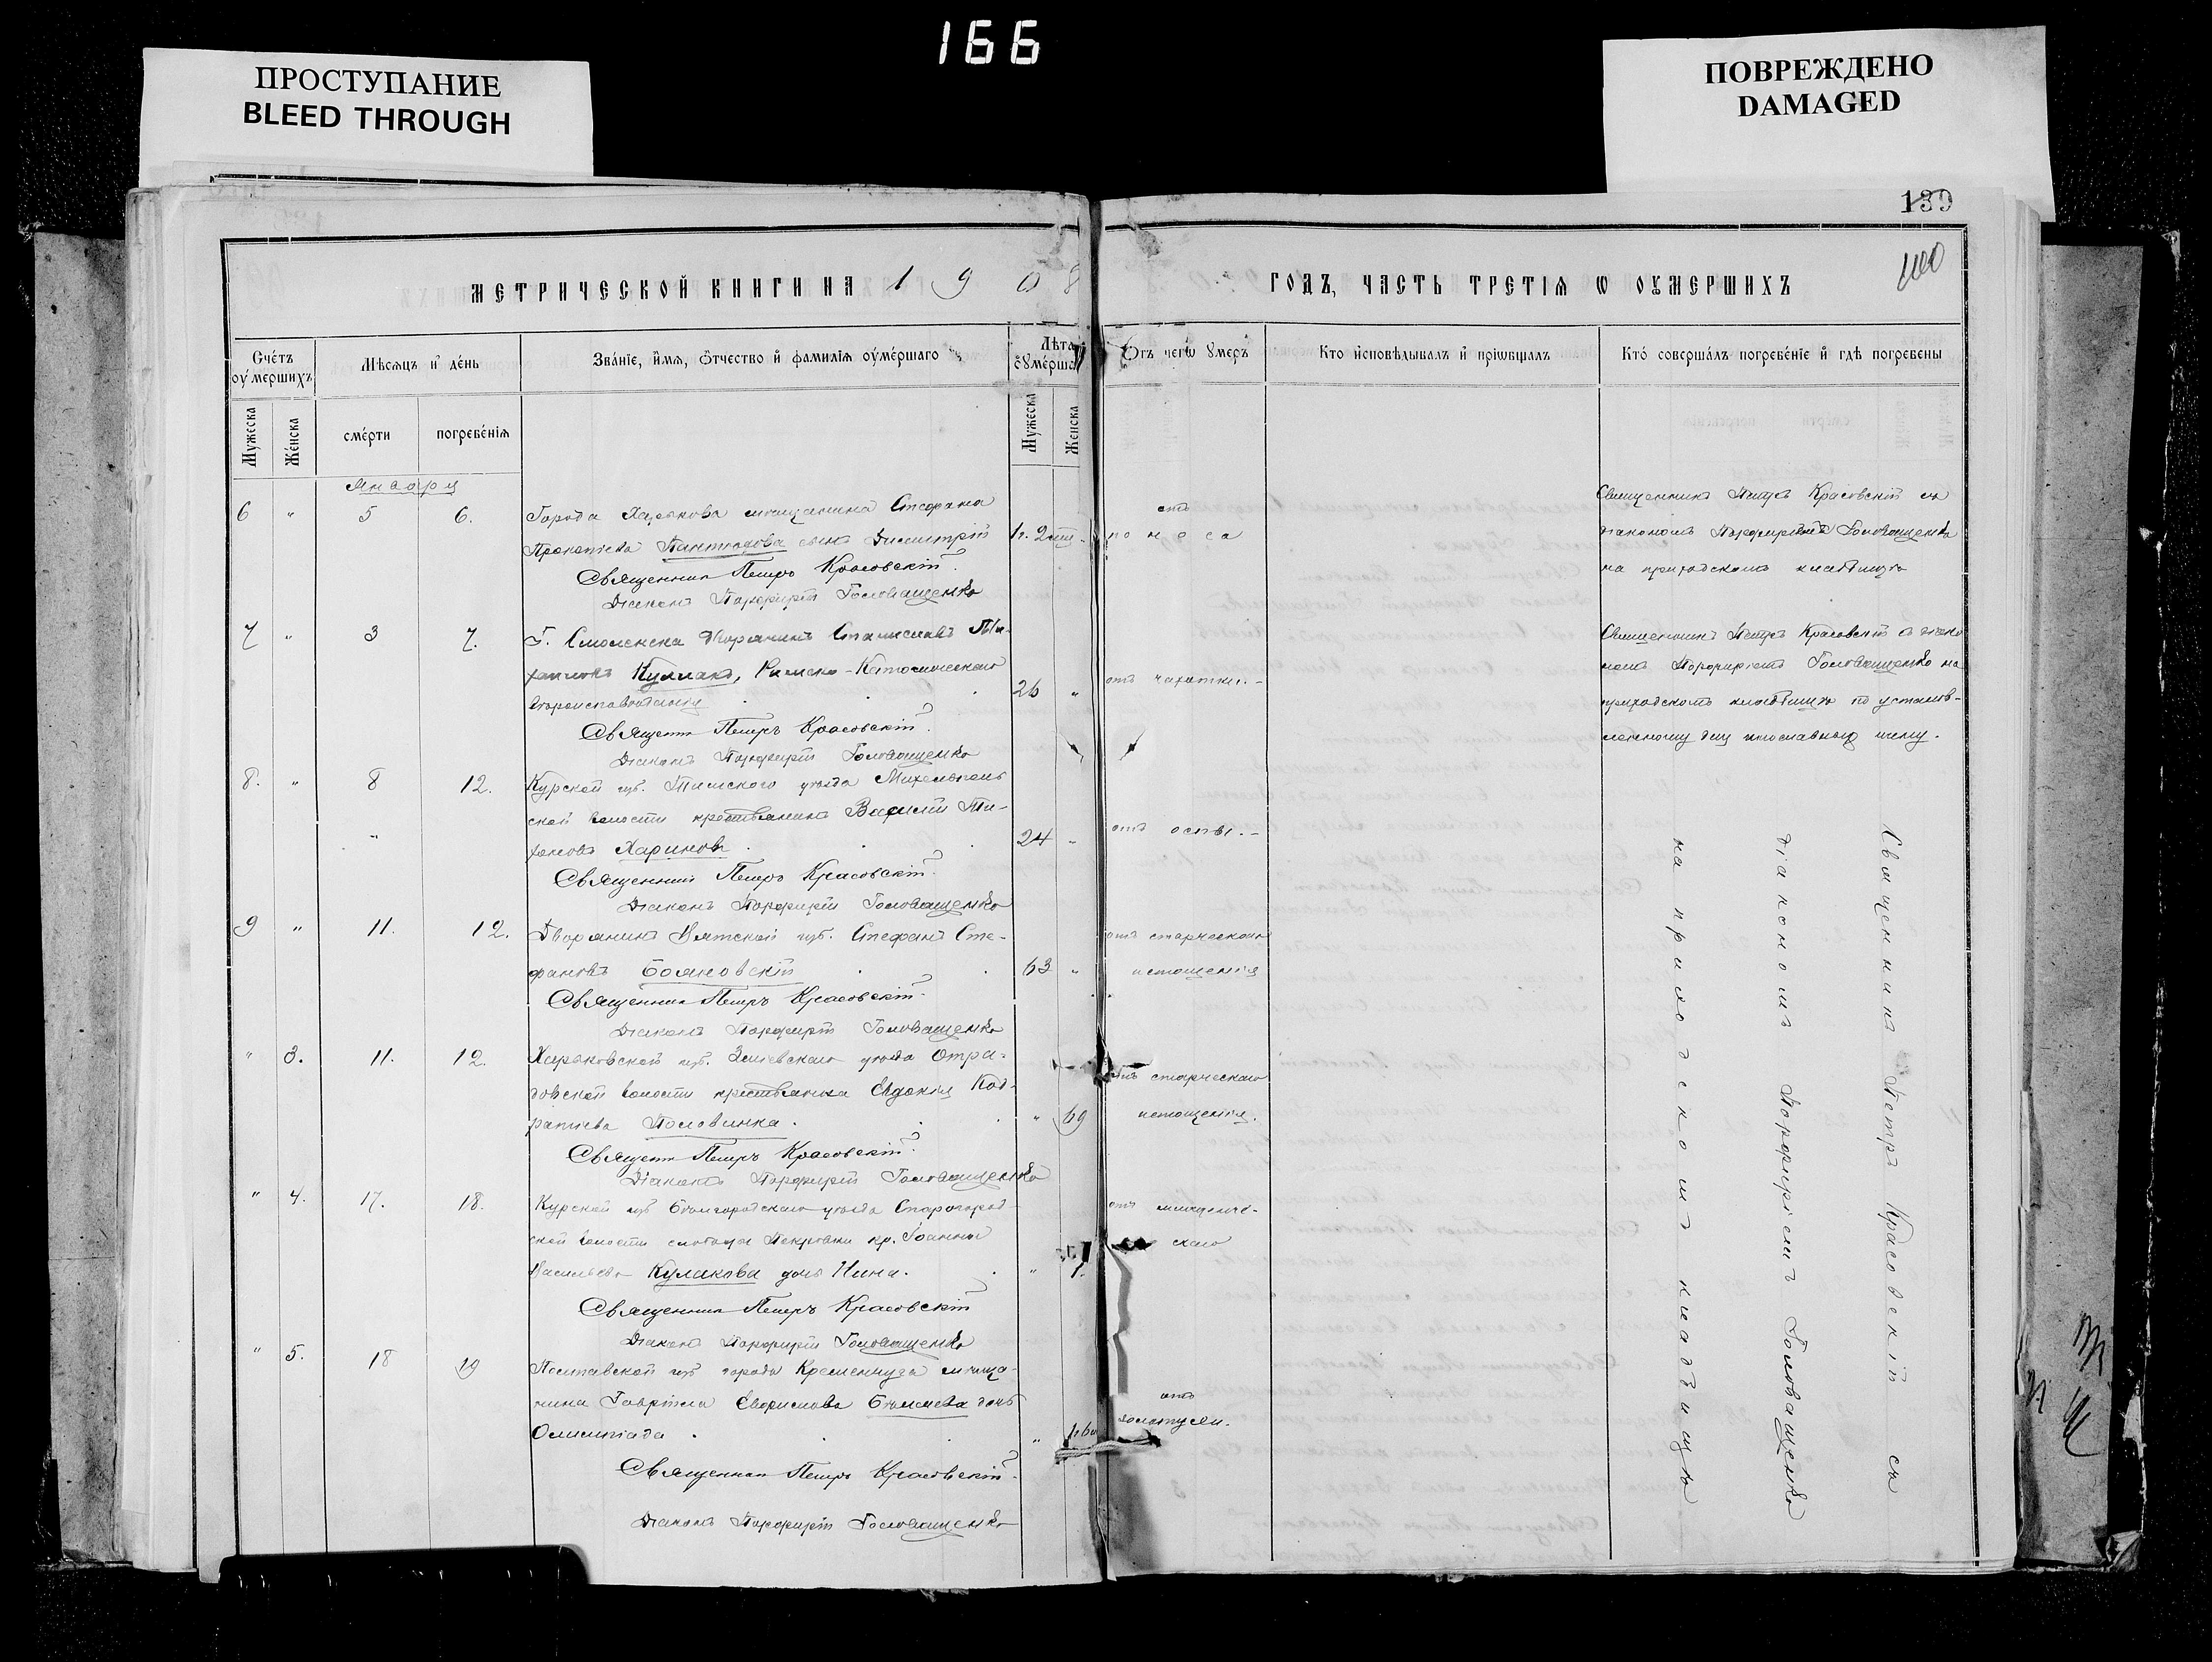 166
ПРОСТУПАНИЕ
BLEED THROUGH
ПОВРЕЖДЕНО
DAMAGED
139
МЕТРИЧЕСКОЙ КНИГИ НА 1908
ГОДЪ, ЧАСТЬ ТРЕТІЯ Ѡ ОУМЕРШИХЪ
Счетъ оумершихъ
Мѣсяцъ и день
Званіе, имя, ѿчество и фамилія оумершаго
Лѣта оумерша
Отъ чегѡ умеръ
Кто исповѣдывалъ и пріѡбщалъ
Кто совершалъ погребеніе и гдѣ погребены
Мужеска
Женска
смерти
погребенія
Мужеска
Женска
Января
6 " 5 6.
Города Харькова мѣщанина Стефана
Прокопіева сынъ Димитрій
отъ
поноса
Священникъ Петръ Красовскій съ
діакономъ Порфиріемъ Головащенко
на приходскомъ кладбищѣ
Священникъ Петръ Красовскій.
Діаконъ Порфирій Головащенко
7 " 3 7.
Г. Смоленска Дворянинъ Станиславъ
Кулмакъ, Римско-Католическаго
вѣроисповѣданія
26 "
отъ чахотки. -
Священникъ Петръ Красовскій съ діако
номъ Порфиріемъ Головащенко на
приходскомъ кладбищѣ по установ-
ленному для инославныхъ чину.
Священн Петръ Красовскій.
Діаконъ Порфирій Головащенко
8. " 8 12.
Курской губ. Тимскаго уѣзда
ской волости крестьянинъ Василій Ти-
хоновъ Хариновъ
24 "
отъ оспы. -
Священникъ Петръ Красовскій.
Діаконъ Порфирій Головащенко
9 " 11. 12.
Дворянинъ Вятской губ. Стефанъ Сте-
фановъ Бояновскій
63 "
отъ старческаго
истощенія
Священникъ Петръ Красовскій.
Діаконъ Порфирій Головащенко
" 3. 11. 12.
Харьковской губ. Зміевскаго уѣзда Отра-
довской волости крестьянка Евдокія Код-
ратіева Половинка.
" 69
отъ старческаго
истощенія.
Священн Петръ Красовскій.
Діаконъ Порфирій Головащенко
" 4. 17. 18.
Курской губ Бѣлгородскаго уѣзда Старогород-
ской волости слободы Покровки кр. Іоанна
Васильева Кулакова дочь Нина.
" 1.
отъ младенче-
скаго
Священникъ Петръ Красовскій
Діаконъ Порфирій Головащенко
" 5. 18 19
Полтавской губ города Кременчуга мѣща-
нина Гавріила дочь
Олимпіада
отъ
золотухи.
Священникъ Петръ Красовскій.
Діаконъ Порфирій Головащенко
Священникъ Петръ Красовскій съ
діакономъ Порфиріемъ Головащенко
на приходскомъ кладбищѣ